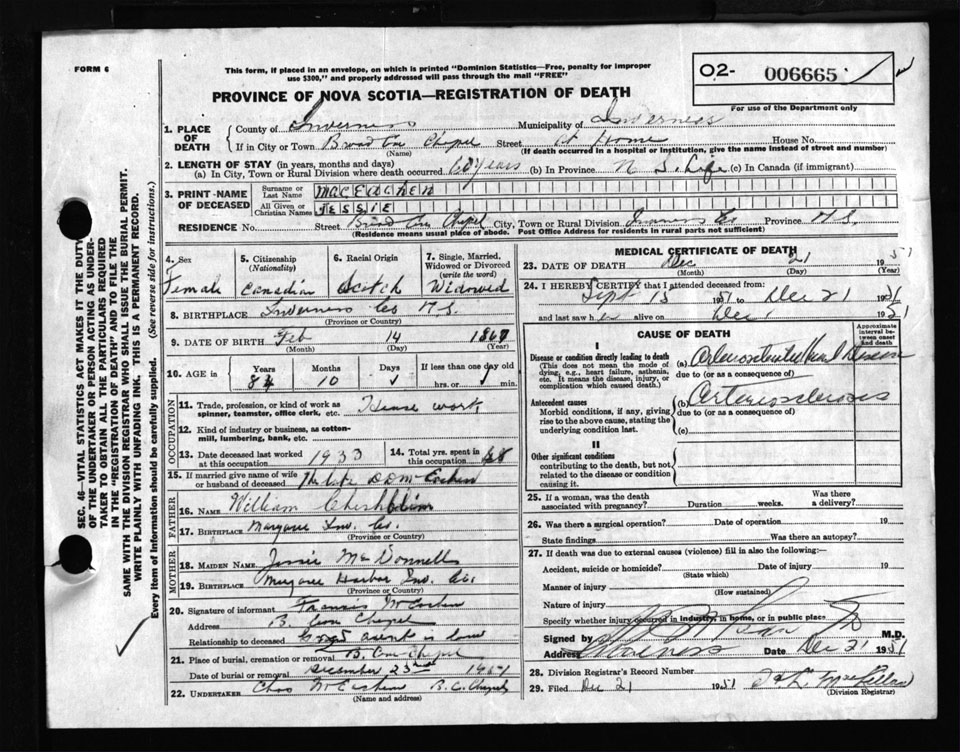 FORM 6
This form, if placed in an envelope, on which is printed "Dominion Statistics—Free, penalty for improper
use $300," and properly addressed will pass through the mail "FREE"
O2- 006665
For use of the Department only
PROVINCE OF NOVA SCOTIA—REGISTRATION OF DEATH
1. PLACE OF DEATH County of Inverness Municipality of Inverness
If in City or Town Broad Cove Chapel Street At Home House No.
(Name) (If death occurred in a hospital or institution, give the name instead of street and number)
2. LENGTH OF STAY (in years, months and days)
(a) In City, Town or Rural Division where death occurred 60 years (b) In Province N S. Life (c) In Canada (if immigrant)
3. PRINT NAME OF DECEASED Surname or Last Name MACEACHEN
All Given or Christian Names JESSIE
RESIDENCE No. Street Broad Cove Chapel City, Town or Rural Division Inverness Co Province N.S.
(Residence means usual place of abode. Post Office Address for residents in rural parts not sufficient)
4. Sex Female
5. Citizenship (Nationality) Canadian
6. Racial Origin Scotch
7. Single, Married, Widowed or Divorced (write the word) Widowed
8. BIRTHPLACE Inverness Co N.S.
(Province or Country)
9. DATE OF BIRTH Feb 14 1867
(Month) (Day) (Year)
10. AGE in Years 84 Months 10 Days If less than one day old hrs. or min.
OCCUPATION
11. Trade, profession, or kind of work as spinner, teamster, office clerk, etc. House work
12. Kind of industry or business, as cotton-mill, lumbering, bank, etc.
13. Date deceased last worked at this occupation 1933
14. Total yrs. spent in this occupation
15. If married give name of wife or husband of deceased The late D D McEachen
FATHER
16. NAME William Chisholm
17. BIRTHPLACE Margaree Inv. Co.
(Province or Country)
MOTHER
18. MAIDEN NAME McDonnell
19. BIRTHPLACE Margaree Harbor Inv. Co.
(Province or Country)
20. Signature of informant Francis McEachen
Address B. Cove Chapel
Relationship to deceased in law
21. Place of burial, cremation or removal B. Cove Chapel
Date of burial or removal December 23rd 1951
22. UNDERTAKER Chas McEachern B.C. Chapel
(Name and address)
MEDICAL CERTIFICATE OF DEATH
23. DATE OF DEATH Dec 21 1951
(Month) (Day) (Year)
24. I HEREBY CERTIFY that I attended deceased from:
Sept 15 1951 to Dec 21 1951
and last saw her alive on Dec 1951
CAUSE OF DEATH
Approximate interval between onset and death
I
Disease or condition directly leading to death
(This does not mean the mode of dying, e.g., heart failure, asthenia, etc. It means the disease, injury, or complication which caused death.)
(a) Heart Disease
due to (or as a consequence of)
Antecedent causes
Morbid conditions, if any, giving rise to the above cause, stating the underlying condition last.
(b) Arteriosclerosis
due to (or as a consequence of)
(c)
II
Other significant conditions
contributing to the death, but not related to the disease or condition causing it.
25. If a woman, was the death associated with pregnancy? Duration weeks. Was there a delivery?
26. Was there a surgical operation? Date of operation 19
State findings Was there an autopsy?
27. If death was due to external causes (violence) fill in also the following:
Accident, suicide or homicide? Date of injury 19
(State which)
Manner of injury
(How sustained)
Nature of injury
Specify whether injury occurred in industry, in home, or in public place
Signed by M.D.
Address Inverness Date Dec 21 1951
28. Division Registrar's Record Number
29. Filed Dec 21 1951 MacLellan
(Division Registrar)
SEC. 46—VITAL STATISTICS ACT MAKES IT THE DUTY
OF THE UNDERTAKER OR PERSON ACTING AS UNDER-
TAKER TO OBTAIN ALL THE PARTICULARS REQUIRED
IN THE "REGISTRATION OF DEATH" AND TO FILE THE
SAME WITH THE DIVISION REGISTRAR WHO SHALL ISSUE THE BURIAL PERMIT.
WRITE PLAINLY WITH UNFADING INK. THIS IS A PERMANENT RECORD.
Every item of information should be carefully supplied. (See reverse side for instructions.)